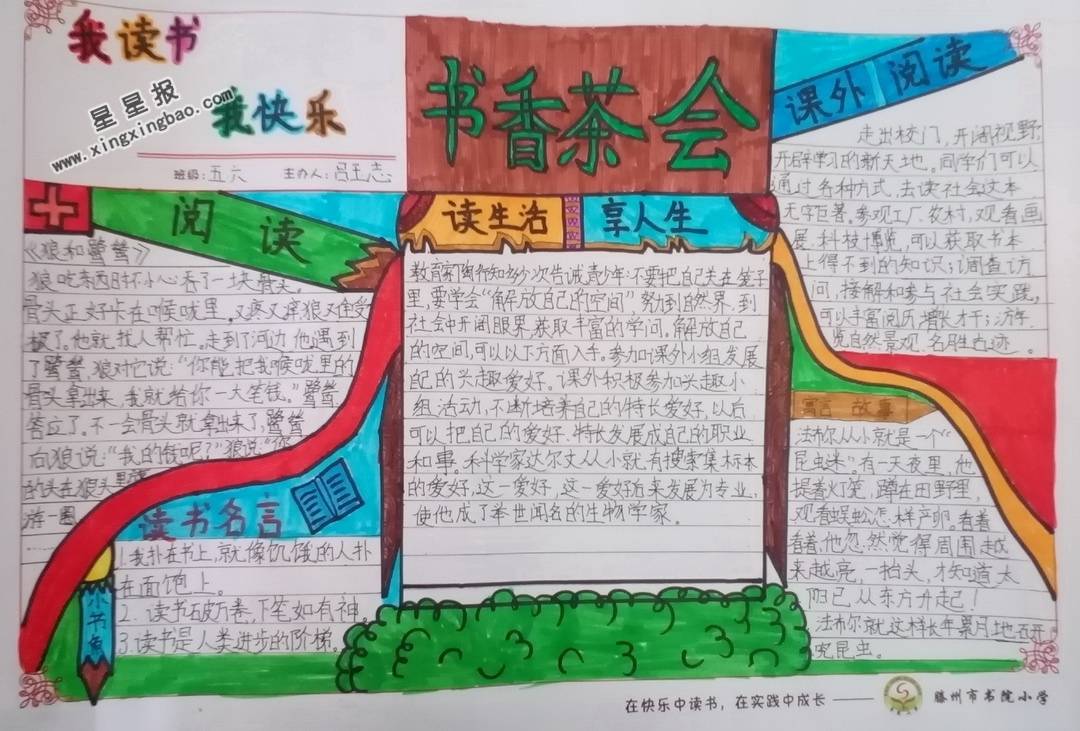 我读书
我快乐
星星报
www.xingxingbao.com
班级:五六 主办人:吕王志
书香茶会
课外阅读
走出校门,开阔视野,
开辟学习的新天地。同学们可以
通过各种方式,去读社会这本
无字巨著。参观工厂、农村,观看画
展、科技博览,可以获取书本
上得不到的知识;调查访
问,接解和参与社会实践,
可以丰富阅历,增长才干;游
览自然景观、名胜古迹。
阅读
《狼和鹭鸶》
狼吃东西时不小心吞了一块骨头。
骨头正好卡在喉咙里。又疼又痒狼难受
极了。他就找人帮忙。走到了河边他遇到
了鹭鸶,狼对它说:“你能把我喉咙里的
骨头拿出来,我就给你一大笔钱。”鹭鸶
答应了。不一会骨头就拿出来了,鹭鸶
向狼说:“我的钱呢?”狼说:“你
的头在狼头里
游一圈
读生活 享人生
教育家陶行知多次告诫青少年:不要把自己关在笼子
里,要学会“解放自己的空间”努到自然界、到
社会中开阔眼界,获取丰富的学问。解放自己
的空间,可以以下方面入手。参加课外小组,发展
配的兴趣爱好。课外积极参加兴趣小
组活动,不断培养自己的特长爱好,以后
可以把自己的爱好、特长发展成自己的职业
和事。科学家达尔文从小就有搜索集标本
的爱好,这一爱好,这一爱好后来发展为专业,
使他成了举世闻名的生物学家。
寓言故事
法布尔从小就是一个“
昆虫迷”。有一天夜里,他
提着灯笼,蹲在田野里,
观看蜈蚣怎样产卵。看着
看着,他忽然觉得周围越
来越亮,一抬头,才知道太
阳已从东方升起!
法布尔就这样长年累月地研
究昆虫。
读书名言
1.我扑在书上,就像饥饿的人扑
在面包上。
2.读书破万卷,下笔如有神。
3.读书是人类进步的阶梯。
小书角
在快乐中读书,在实践中成长——
滕州市书院小学